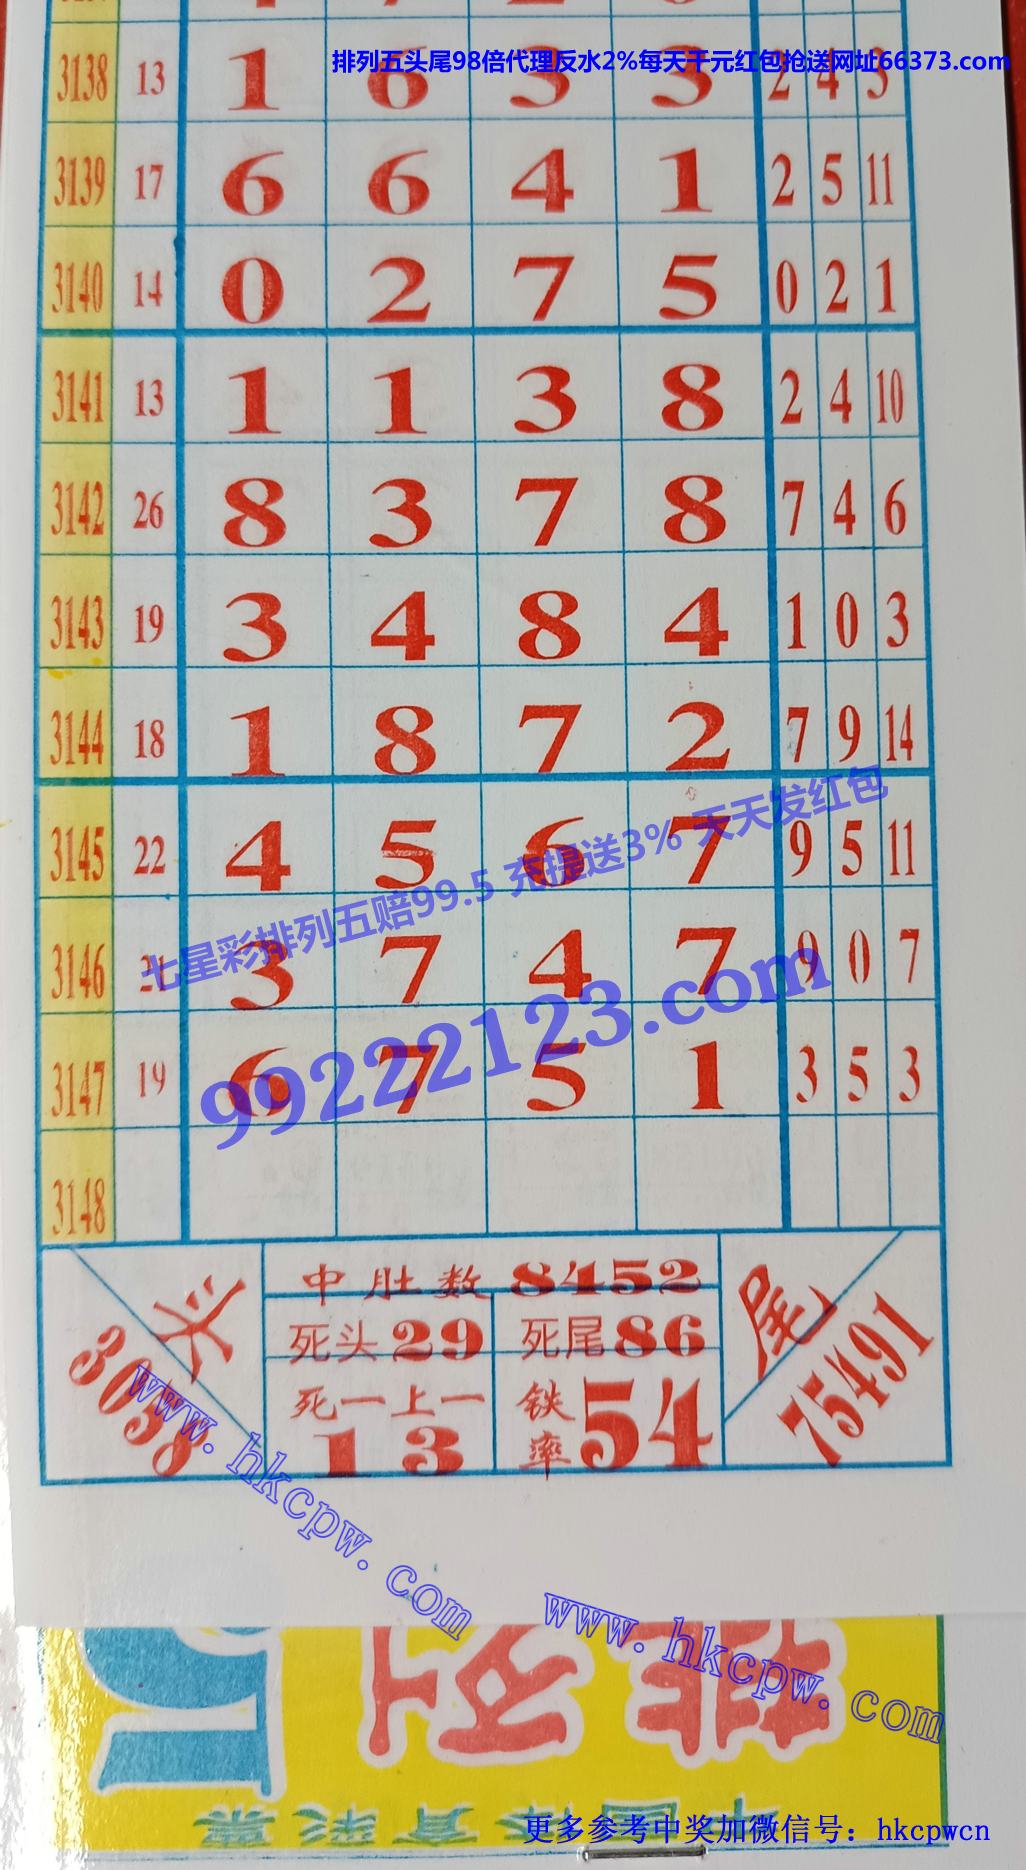 排列五头尾98倍代理反水2%每天千元红包抢送网址66373.com
3138 13 1 6 3 3 2 4 3
3139 17 6 6 4 1 2 5 11
3140 14 0 2 7 5 0 2 1
3141 13 1 1 3 8 2 4 10
3142 26 8 3 7 8 7 4 6
3143 19 3 4 8 4 1 0 3
3144 18 1 8 7 2 7 9 14
3145 22 4 5 6 7 9 5 11
七星彩排列五赔99.5 充提送3% 天天发红包
3146 21 3 7 4 7 9 0 7
99222123.com
3147 19 6 7 5 1 3 5 3
3148
头
中肚数 8452
尾
死头29 死尾86
75491
死一上一
13
铁率54
www.hkcpw.com
www.hkcpw.com
排列
5
中国体育彩票
更多参考中奖加微信号：hkcpwcn